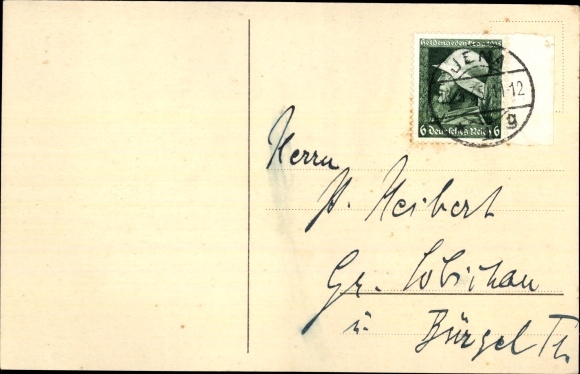 Heldengedenktag 1935
JENA
-12
g
6 Deutsches Reich 6
Herrn
H. Heibert
Gr. Löbichau
ü. Bürgel Th.